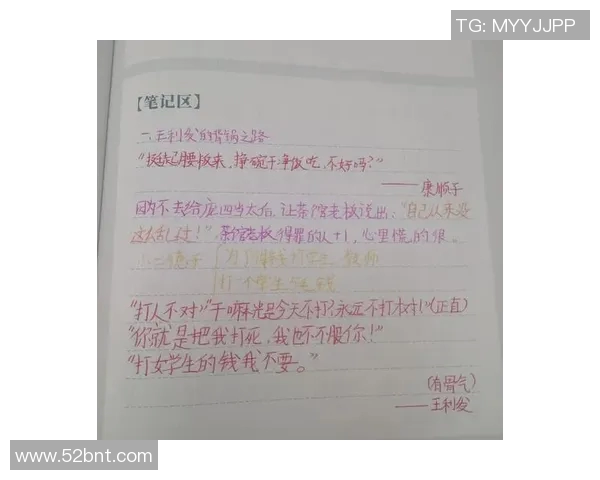 TG: MYYJJPP
【笔记区】
一、王利发的背锅之路
"挺起腰板来，挣碗干净饭吃，不好吗？"
——康顺子
因为不去给庞四当太后，让茶馆老板说出："自己从来没
这么乱过！"茶馆老板得罪的人+1，心里慌的很。
二德子
打一个学生
"打人不对""干嘛光是今天不打？永远不打才对！"（正直）
"你就是把我打死，我也不服你！"
"打女学生的钱我不要。"
（有骨气）
——王利发
www.52bnt.com